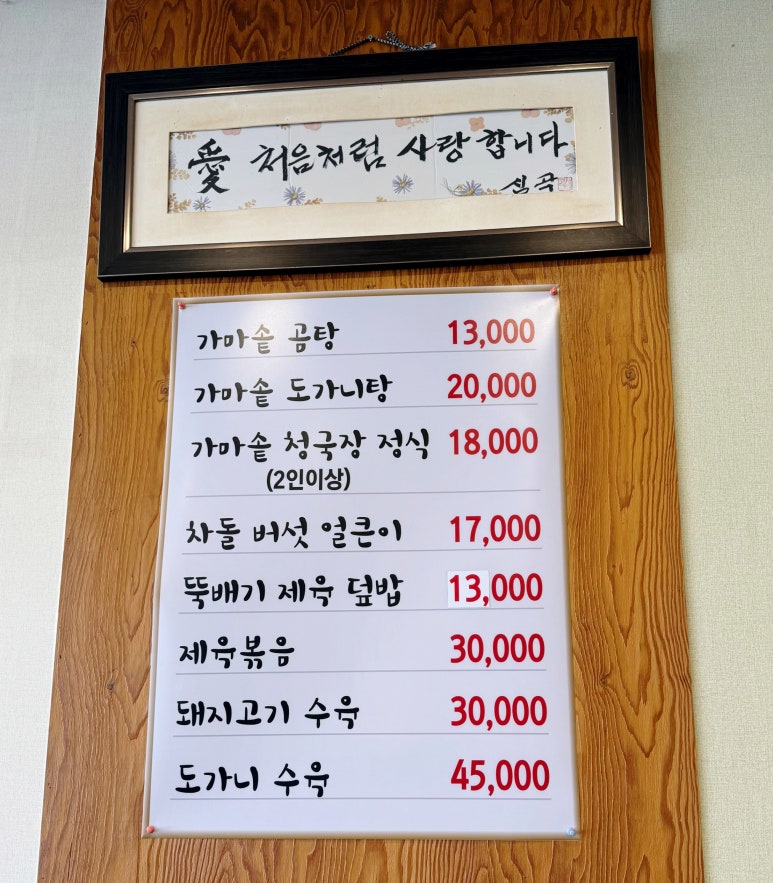 愛 처음처럼 사랑합니다
심곡
가마솥 곰탕 13,000
가마솥 도가니탕 20,000
가마솥 청국장 정식 18,000
(2인이상)
차돌 버섯 얼큰이 17,000
뚝배기 제육 덮밥 13,000
제육볶음 30,000
돼지고기 수육 30,000
도가니 수육 45,000